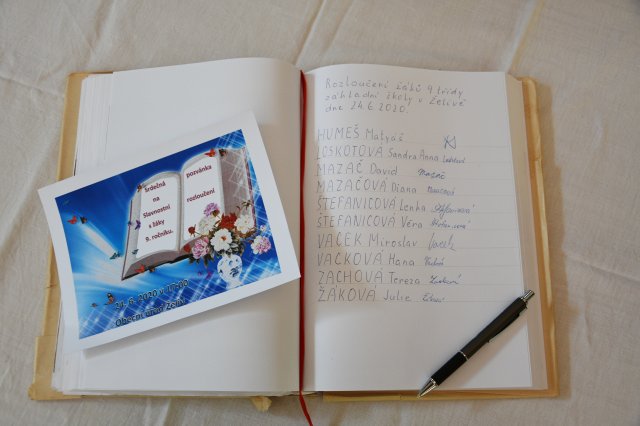 Srdečná pozvánka
na
Slavnostní rozloučení
s žáky
9. ročníku.
24. 6. 2020 v 17:00
Obecní úřad Želiv
Rozloučení žáků 9 třídy
základní školy v Želivě
dne 24.6 2020.
HUMEŠ Matyáš
LOSKOTOVÁ Sandra Anna Loskotová
MAZAČ David Mazač
MAZAČOVÁ Diana Mazačová
ŠTEFANICOVÁ Lenka Štefanicová
ŠTEFANICOVÁ Věra Štefanicová
VAČEK Miroslav Vacek
VAČKOVÁ Hana
ZACHOVÁ Tereza
ŽÁKOVÁ Julie